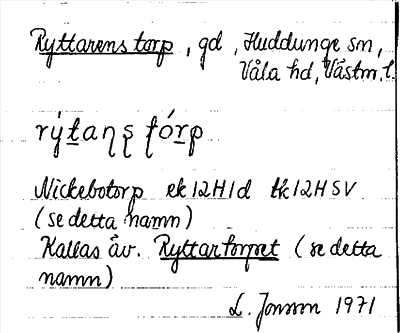 Ryttarens torp, gd, Huddunge sn,
Våla hd, Västm. l.
rýt̲aɳʂ t̲ór̲p
Nickebotorp ek 12H1d tk 12H SV
(se detta namn)
Kallas äv. Ryttartorpet (se detta
namn)
L. Jonsson 1971